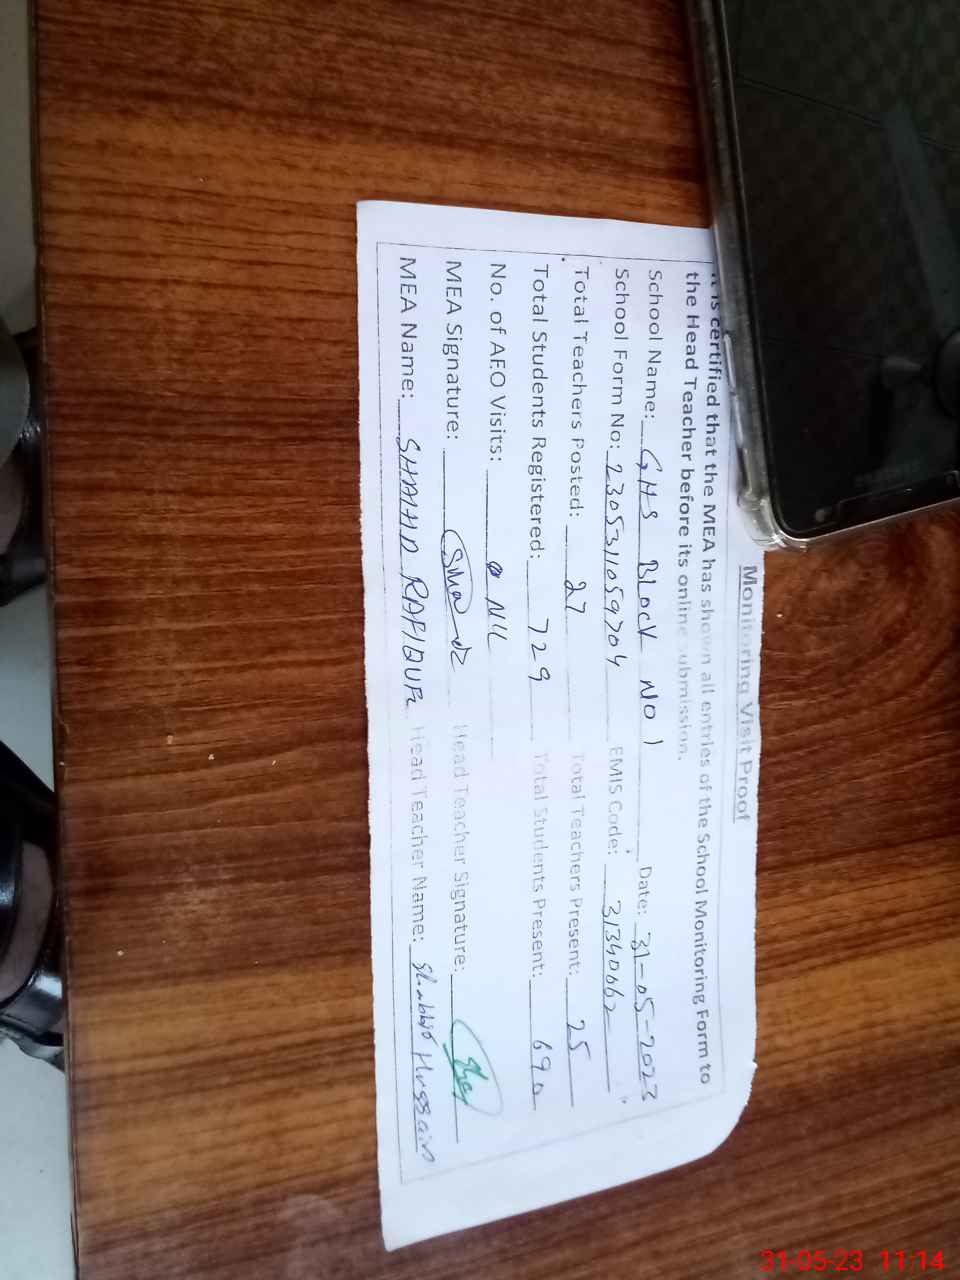 Monitoring Visit Proof
It is certified that the MEA has shown all entries of the School Monitoring Form to
the Head Teacher before its online submission.
School Name: GHS Block NO 1 Date: 31-05-2023
School Form No: 230531059704 EMIS Code: 31340062
Total Teachers Posted: 27 Total Teachers Present: 25
Total Students Registered: 729 Total Students Present: 690
No. of AEO Visits: NIL
MEA Signature: Head Teacher Signature:
MEA Name: SHAHID RAFIQUE Head Teacher Name: Shabbir Hussain
31-05-23 11:14